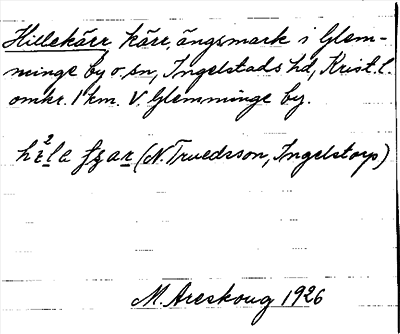 Hillekärr, kärr, ängsmark i Glem-
minge by o. sn, Ingelstads hd, Krist. l.
omkr. 1 km. V. Glemminge by.
(N. Truedsson, Ingelstorp)
M. Areskoug 1926